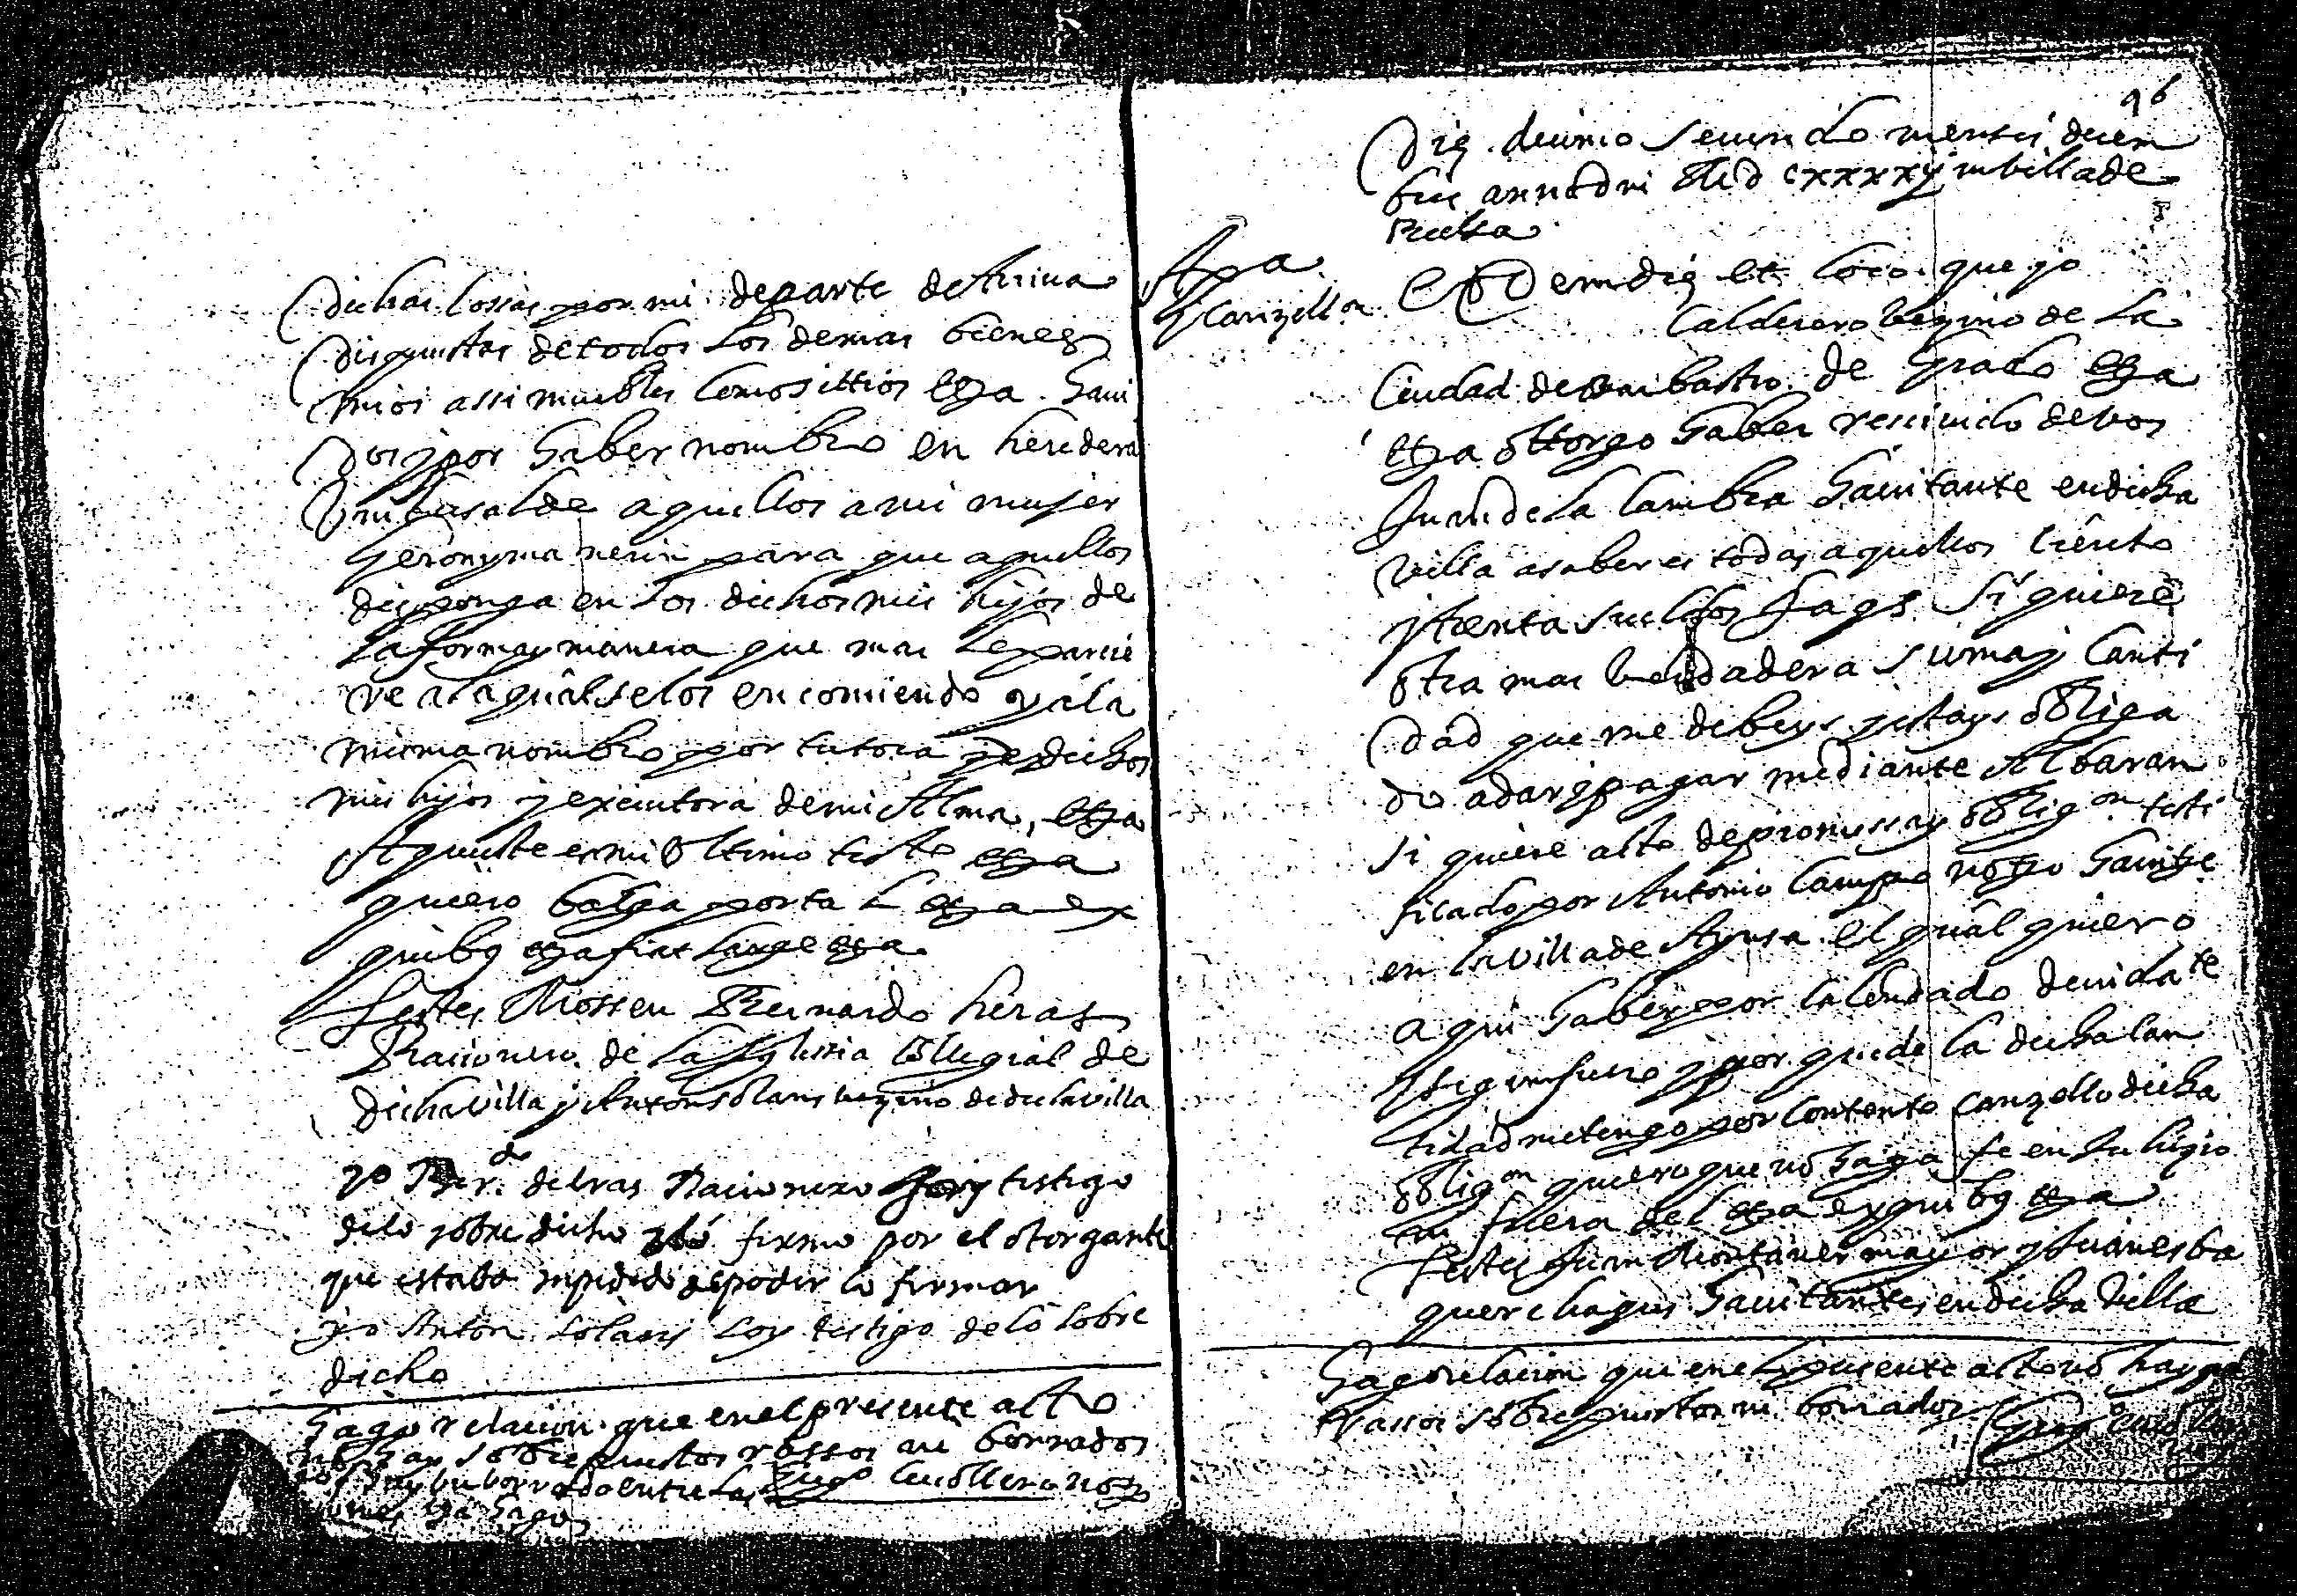 dichas cossas por mi de parte de Arriva
dispuestas de todos los demas bienes
mios assi muebles como sittios etza. havi
dos y por haber nombro en heredera
unibersal de aquellos a mi mujer
Geronyma nerin para que aquellos
disponga en los dichos mis hijos de
la forma y manera que mas le parecie
re a la qual se los encomiendo y a la
misma nombro por tutora de dichos
mis hijos y executora de mi Alma, etza
Aqueste es mi ultimo testto etza
quiero balga por tal etza ex
quibus etza fiat large etza.
Testes Mossen Bernardo heras
Racionero de la Iglessia Collegial de
dicha villa y Anton Solans vezino de dicha villa
yo Berdo. de Eras Racionero soy testigo
de lo sobre dicho y lo firmo por el otorgante
que estaba inpidido de poder lo firmar
yo Anton Solans soy testigo de lo sobre
dicho
Hago relacion que en el presente acto
no hay sobrepuestos rassos ni borrados
hay un borrado entre las
etza hago
96
Die decimo secundo mensis decem
bris anno dni MD CXXXXIJ in villa de
Apca.
y Canzellon.
Eodem die et loco. que yo
Calderero vezino de la
Ciudad de Barbastro. de grado etza
etza ottorgo haber rescivido de vos
Juan de la Cambra havitante en dicha
villa a saber es todos aquellos ciento
y trenta sueldos Jaqs. Si quiere
otra mas verdadera suma y canti
dad que me debeys y estays obliga
do a dar y pagar mediante Albaran
si quiere acto de promessa y obligon. testi
ficado por Antonio Campo notro havitte
en la villa de Aynsa. el qual quiero
aqui haber por calendado devidate
y segun fuero y por que de la dicha can
tidad me tengo por contento canzello dicha
obligon quiero que no haga fe en Juhizio
ni fuera del etza ex quibus etza
Testes Juan Montaner mayor y Juan esba
querchagus havitantes en dicha Villa
Hago relacion que en el presente acto no hay
rassos sobrepuestos ni borrados.